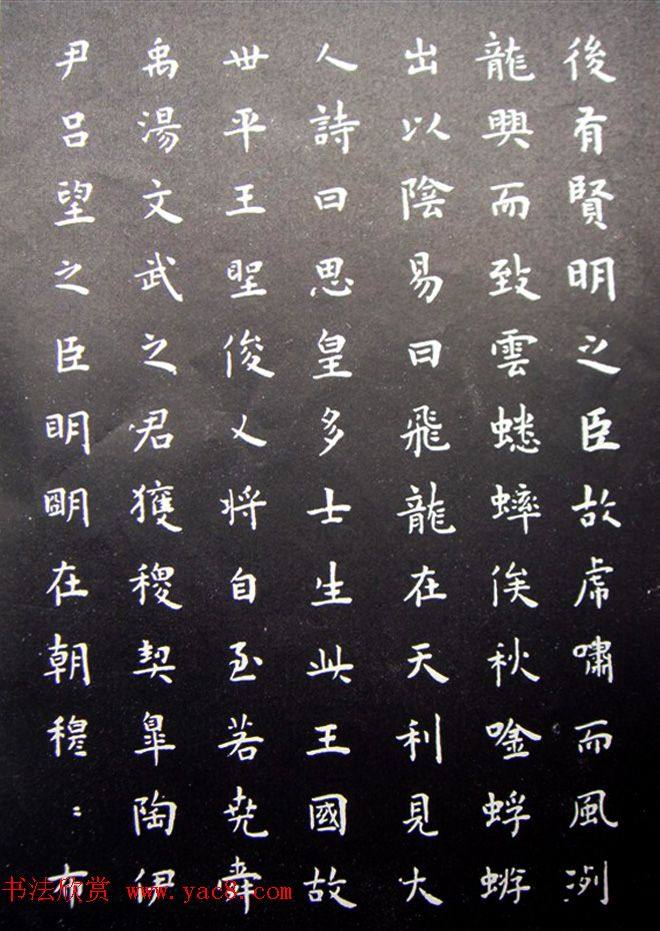 後有賢明之臣故虎嘯而風冽
龍興而致雲蟋蟀俟秋唫蜉蝣
出以陰易曰飛龍在天利見大
人詩曰思皇多士生此王國故
世平王聖俊乂將自至若堯舜
禹湯文武之君獲稷契皋陶伊
尹呂望之臣明明在朝穆〻布
书法欣赏 www.yac8.com